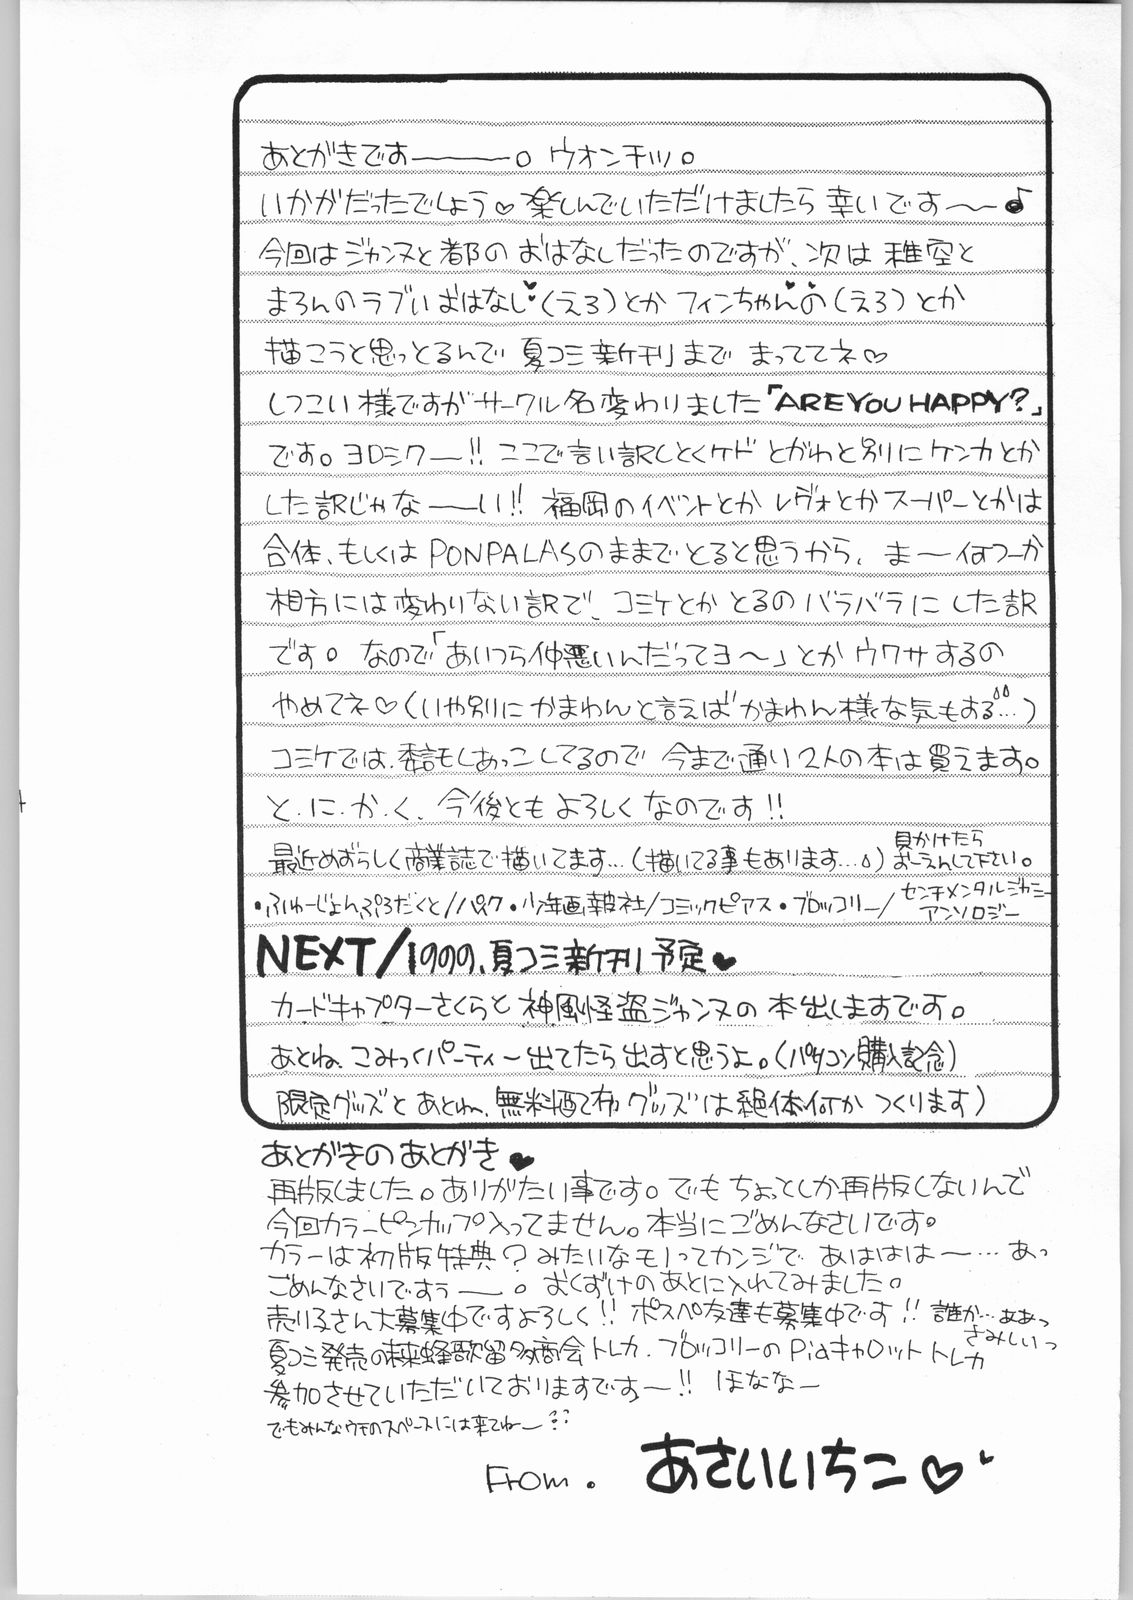 あとがきですーーー。ウオンチッ。
いかがだったでしょう♡楽しんでいただけましたら幸いです〜♪
今回はジャンヌと都のおはなしだったのですが、次は稚空と
まろんのラブいおはなし♥(えろ)とかフィンちゃんの(えろ)とか
描こうと思っとるんで夏コミ新刊までまっててネ♡
しつこい様ですがサークル名変わりました「ARE YOU HAPPY?」
です。ヨロシクー!! ここで言い訳しとくケドとがわと別にケンカとか
した訳じゃなーーい!! 福岡のイベントとかレヴォとかスーパーとかは
合体、もしくはPONPALASのままでとると思うから、まー何つーか
相方には変わりない訳で、コミケとかとるのバラバラにした訳
です。なので「あいつら仲悪いんだってヨ〜」とかウワサするの
やめてネ♡(いや別にかまわんと言えばかまわん様な気もする…)
コミケでは、委託もしあっこしてるので今まで通り2人の本は買えます。
と.に.か.く、今後ともよろしくなのです!!
最近めずらしく商業誌で描いてます…(描いてる事もあります…)見かけたらおーえんして下さい。
・ふゅーじょんぷろだくと/パスク・少年画報社/コミックピアス・ブロッコリー/センチメンタルジャニーアンソロジー
NEXT/1999、夏コミ新刊予定♥
カードキャプターさくらと神風怪盗ジャンヌの本出しますです。
あとね、こみっくパーティー出てたら出すと思うよ。(パソコン購入記念)
限定グッズとあとね、無料配布グッズは絶体何かつくります)
あとがきのあとがき♥
再版しました。ありがたい事です。でもちょっとしか再版しないんで
今回カラーピンナップ入ってません。本当にごめんなさいです。
カラーは初版特典?みたいなモノってカンジであははは〜…あっ
ごめんなさいですぅー。おくずけのあとに入れてみました。
売り子さん大募集中ですよろしく!! ポスペ友達も募集中です!! 誰か…ああっさみしいっ
夏コミ発売の未来蜂歌留多商会トレカ.ブロッコリーのPiaキャロットトレカ
参加させていただいておりますですー!! ほななー
でもみんなウチのスペースには来てねー
From. あさいいちこ♡